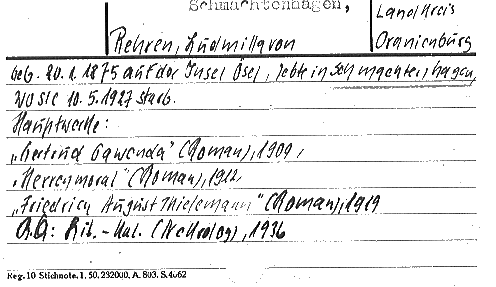 Schmachtenhagen,
Landkreis
Oranienburg
Rehren, Ludmilla von
geb. 20.1.1875 auf der Insel Ösel, lebte in Schmachtenhagen,
wo sie 10.5.1927 starb.
Hauptwerke:
„Gertrud Gawenda" (Roman), 1909,
„Herrenmoral" (Roman), 1912,
„Friedrich August Thielemann" (Roman), 1919
R.Q: Lit.-Kal. (Nekrolog), 1936
Reg. 10 Stichnote. I. 50. 232000. A. 803. S. 4062